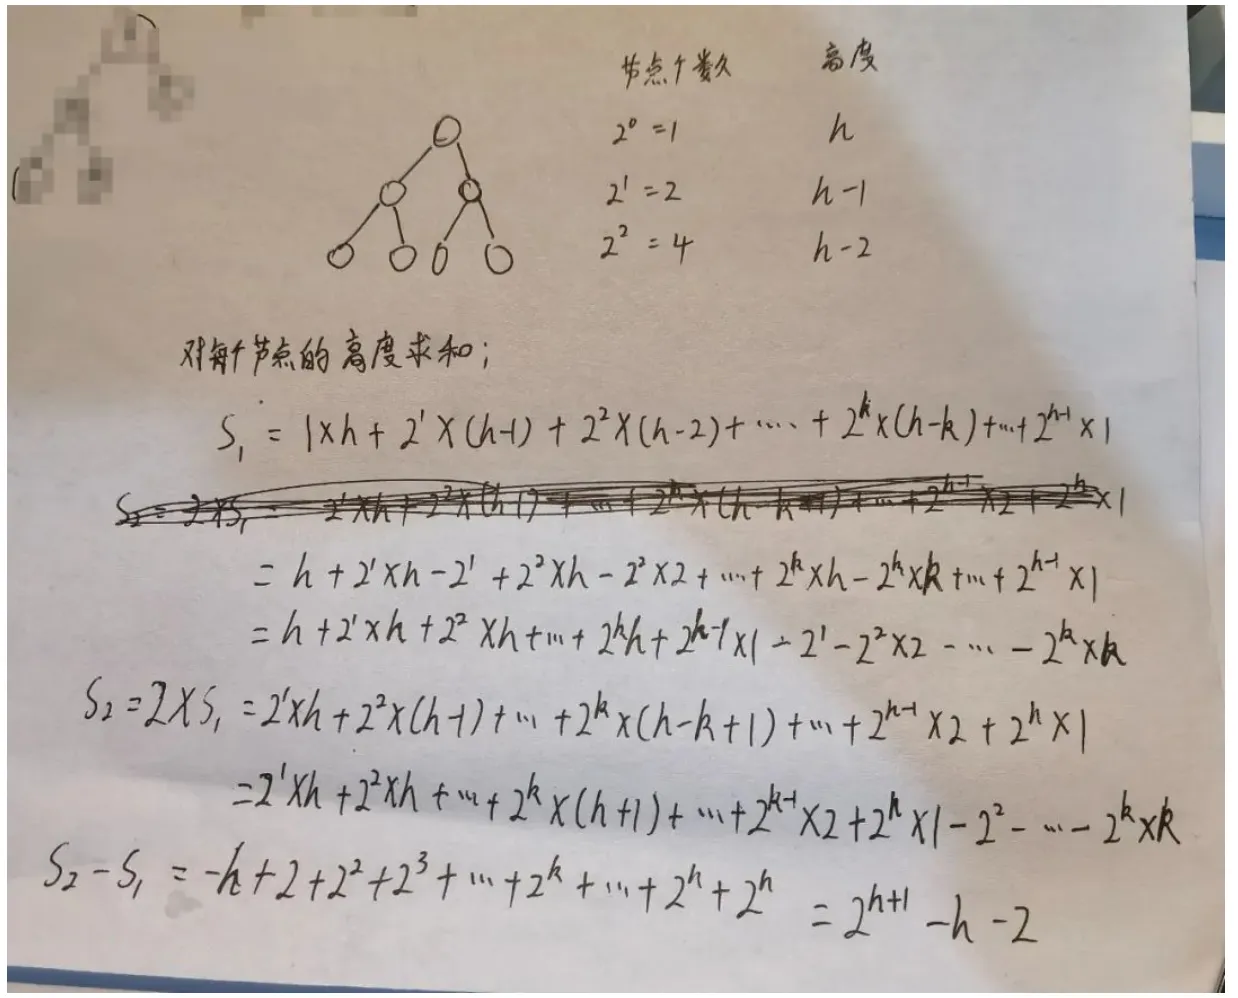 节点个数 高度
2⁰ =1 h
2¹ =2 h-1
2² =4 h-2
对每个节点的高度求和;
S₁ = 1×h + 2¹×(h-1) + 2²×(h-2) + ···· + 2ᵏ×(h-k) + ··· + 2ʰ⁻¹×1
= h + 2¹×h - 2¹ + 2²×h - 2²×2 + ··· + 2ᵏ×h - 2ᵏ×k + ··· + 2ʰ⁻¹×1
= h + 2¹×h + 2²×h + ··· + 2ᵏh + 2ʰ⁻¹×1 - 2¹ - 2²×2 - ··· - 2ᵏ×k
S₂ = 2×S₁ = 2¹×h + 2²×(h-1) + ··· + 2ᵏ×(h-k+1) + ··· + 2ʰ⁻¹×2 + 2ʰ×1
= 2¹×h + 2²×h + ··· + 2ᵏ×(h+1) + ··· + 2ᵏ⁻¹×2 + 2ʰ×1 - 2² - ··· - 2ᵏ×k
S₂ - S₁ = -h + 2 + 2² + 2³ + ··· + 2ᵏ + ··· + 2ʰ + 2ʰ = 2ʰ⁺¹ - h - 2